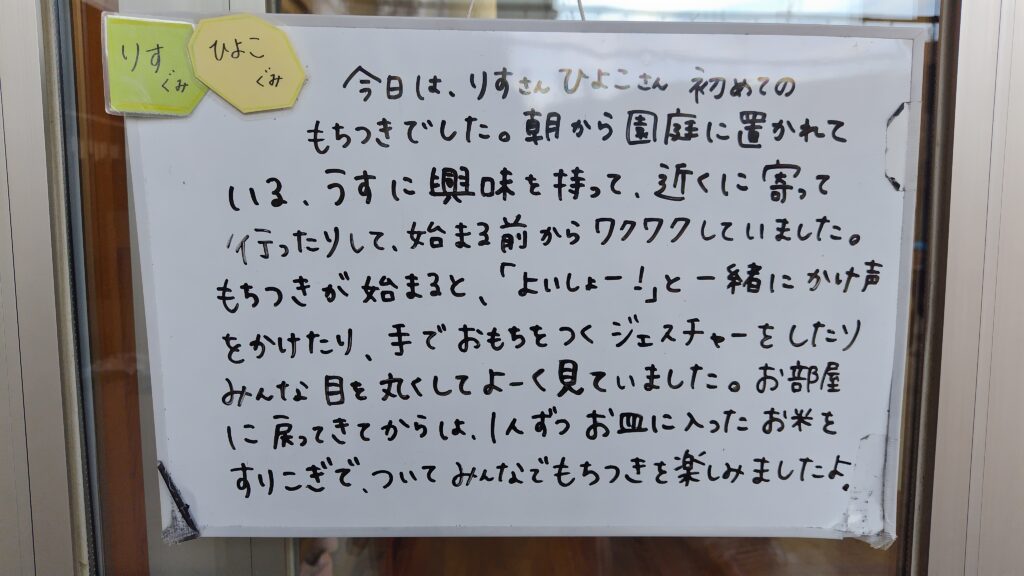 りす
ぐみ
ひよこ
ぐみ
今日は、りすさんひよこさん 初めての
もちつきでした。朝から園庭に置かれて
いる、うすに興味を持って、近くに寄って
行ったりして、始まる前からワクワクしていました。
もちつきが始まると、「よいしょー!」と一緒にかけ声
をかけたり、手でおもちをつくジェスチャーをしたり
みんな目を丸くしてよーく見ていました。お部屋
に戻ってきてからは、1人ずつお皿に入ったお米を
すりこぎで、ついてみんなでもちつきを楽しみましたよ。